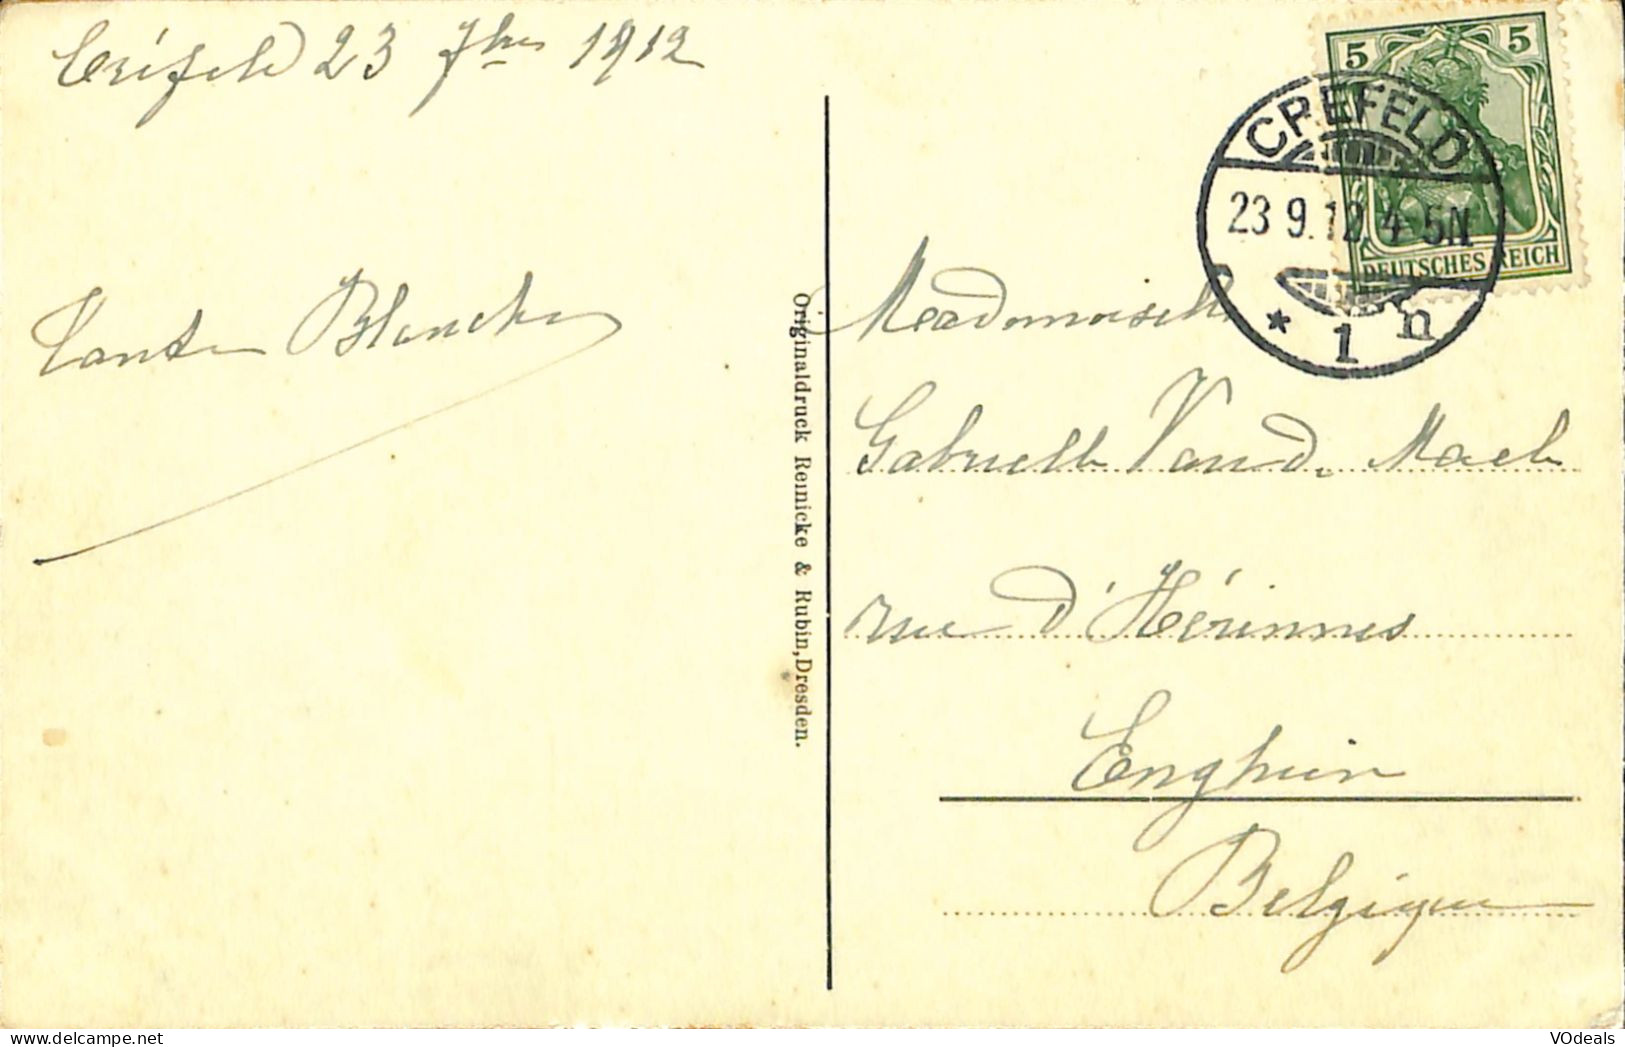 Créfeld 23 7bre 1912
Tante Blanche
Originaldruck Reinicke & Rubin, Dresden.
5 5
DEUTSCHES REICH
CREFELD
23 9.12. 4-5N
* 1 n
Mademoiselle
Gabrielle Vand. Maele
rue d'Hérinnes
Enghien
Belgique
VOdeals